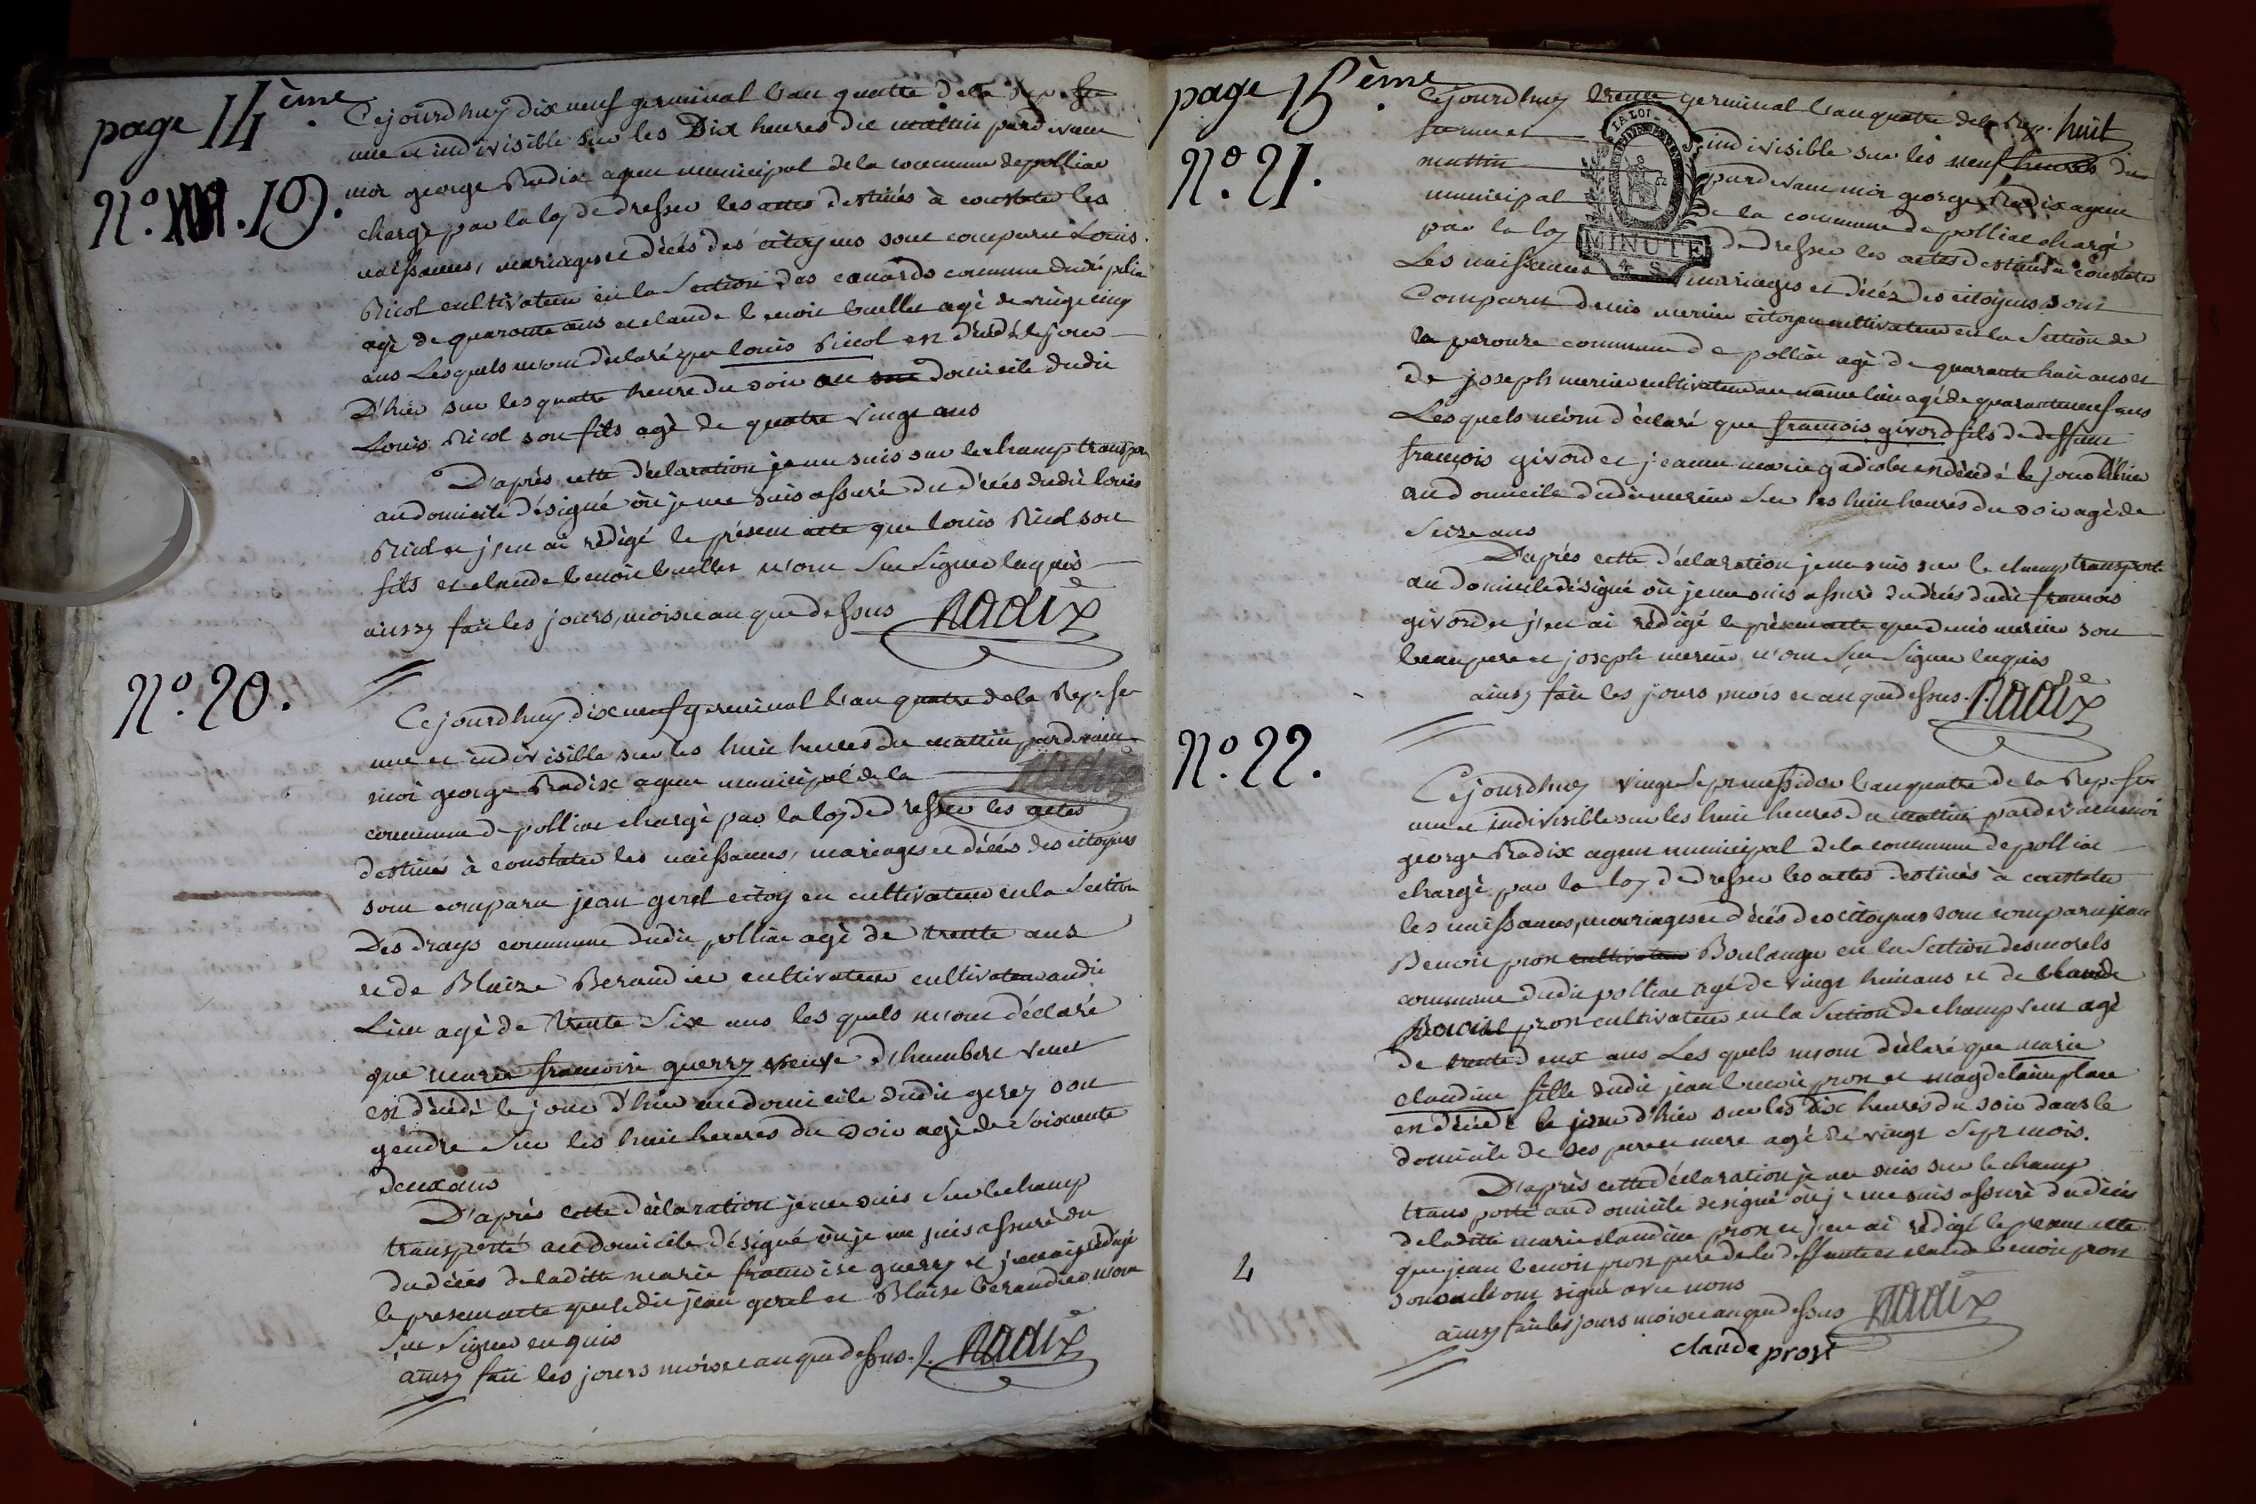 page 14ème.
N°. 19.
Cejourdhuy dix neuf germinal l'an quattre de la Rep. fse
une et indivisible sur les Dix heures du mattin pardevant
moi george Radix agent municipal de la commune de polliac
chargé par la loy de dresser les actes destinés à constater les
naissances, mariages et décés des citoyens sont comparu Louis
Nicol cultivateur en la Section des canards commune dudit polliac
agé de quarante ans et claude benoit buellet agé de vingt cinq
ans Lesquels m'ont déclaré que louis Nicol est décédé le jour
D'hier sur les quattre heure du soir au son domicile dudit
Louis Nicol son fils agé de quattre vingt ans
D'après cette déclaration je me suis sur le champ transporté
au domicile désigné où je me suis assuré du décés dudit louis
Nicol et j'en ai rédigé le présent acte que louis Nicol son
fils et claude benoit buellet n'ont Su Signer enquis
ainsy fait les jours, mois et an que dessus Radix
N°. 20.
Cejourdhuy dix neuf germinal l'an quattre de la Rep. fse
une et indivisible sur les huit heures du mattin pardevant
moi george Radix agent municipal de la
commune de polliac chargé par la loy de dresser les actes
destinés à constater les naissances, mariages et décés des citoyens
sont comparu jean gerel citoyen cultivateur en la Section
Des drays commune dudit polliac agé de trente ans
et de Blaize Beraudier cultivateur cultivateur audit
Lieu agé de trente Six ans les quels m'ont déclaré
que marie francoise guerry veuve d'humbert venet
est décédé le jour d'hier au domicile dudit gerey son
gendre Sur les huit heures du soir agé de Soixante
deux ans
D'après cette déclaration je me suis Sur le champ
transporté au domicile désigné où je me suis assuré du
du décés de laditte marie francoise guerry et j'en ai rédigé
le present acte que ledit jean gerel et Blaise beraudier n'ont
Su Signer enquis
ainsy fait les jours mois et an que dessus. Radix
page 15ème.
huit
N°. 21.
Cejourdhuy trente germinal l'an quattre de la Rep.
fse une et indivisible sur les neuf heures du
mattin pardevant moi george Radix agent
municipal de la commune de polliac chargé
par la loy de dresser les actes destinés à constater
LA LOI
MINUTE
4 S
Les naissances mariages et décéz des citoyens sont
Comparu denis merier citoyen cultivateur en la Section de
la perouze commune de polliac agé de quarante huit ans et
de joseph merier cultivateur au même lieu agé de quarante neuf ans
Les quels m'ont déclaré que françois givord fils de deffunt
françois givord et jeanne marie gadiolet est décédé le jour d'hier
au domicile dudit merier Sur les huit heures du soir agé de
Seize ans
D'après cette déclaration je me suis sur le champ transporté
au domicile désigné où je me suis assuré du décés dudit francois
givord et j'en ai rédigé le présent acte que denis merier son
beaupere et joseph merier n'ont Su Signer enquis
ainsy fait les jours, mois et an que dessus. Radix
N°. 22.
Cejourdhuy vingt Sept messidor l'an quattre de la Rep. fse
une et indivisible sur les huit heures du mattin pardevant moi
george Radix agent municipal de la commune de polliac
chargé par la loy de dresser les actes destinés à constater
les naissances, mariages et décés des citoyens sont comparu jean
Benoit pron cultivateur Boulanger en la Section des morels
commune dudit polliac agé de vingt huit ans et de claude
Benoit pron cultivateur en la Section de champ vent agé
de trente deux ans Les quels m'ont déclaré que marie
claudine fille dudit jean benoit pron et magdelaine place
est décédé le jour d'hier sur les dix heures du soir dans le
domicile de ses pere et mere agé de vingt Sept mois.
D'après cette déclaration je me suis sur le champ
transporté au domicile designé où je me suis assuré du décés
de laditte marie claudine pron et j'en ai rédigé le present acte
que jean benoit pron pere de la deffunte et claude benoit pron
son oncle ont signé avec nous
ainsy fait les jours mois et an que dessus Radix
claude prost